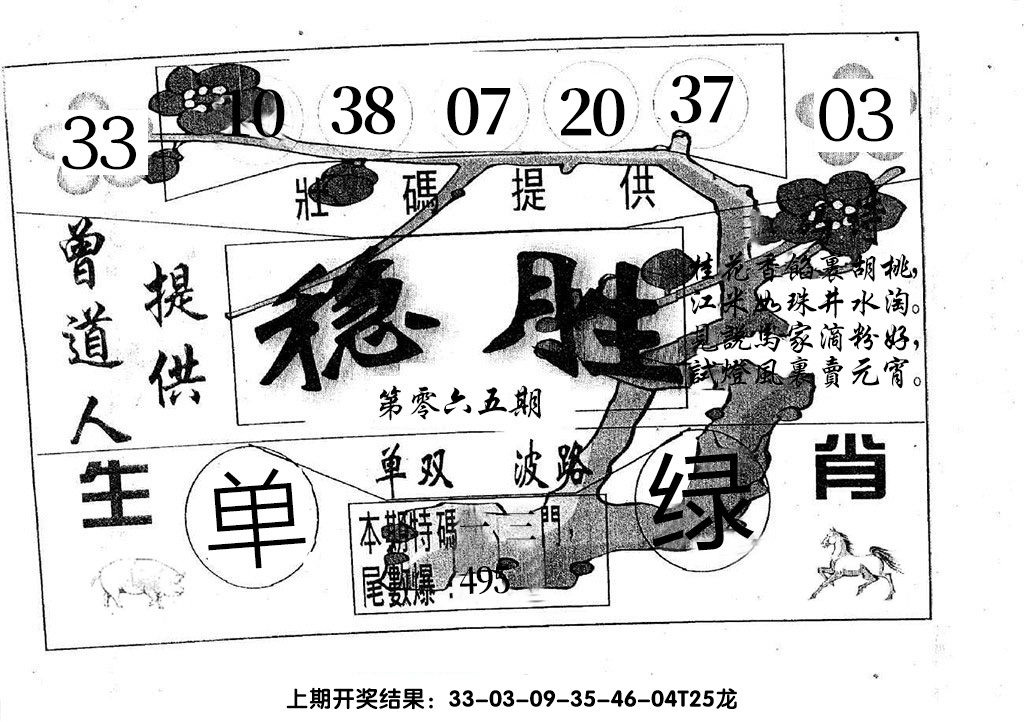 33 10 38 07 20 37 03
壯碼提供
特
曾道人
提供
稳胜
第零六五期
桂花香餡裏胡桃，
江米如珠井水淘。
見說馬家滴粉好，
試燈風裏賣元宵。
单双 波路
生肖
单
绿
本期特碼一、三門，
尾數爆：495
上期开奖结果：33-03-09-35-46-04T25龙